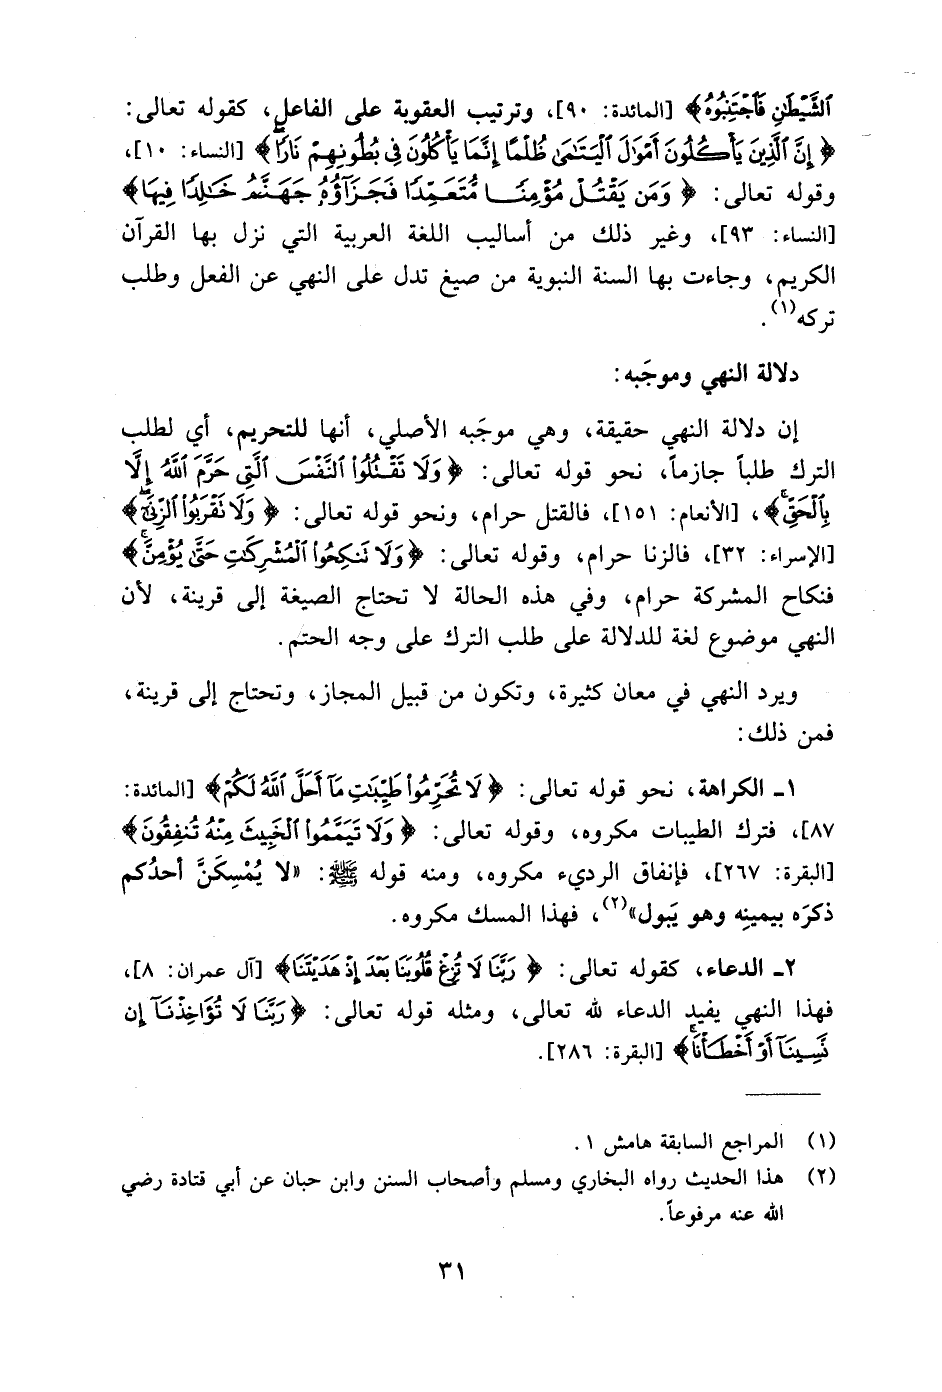 الشَّيْطَٰنِ فَٱجْتَنِبُوهُ﴾ [المائدة: ٩٠]، وترتيب العقوبة على الفاعل، كقوله تعالى:
﴿إِنَّ ٱلَّذِينَ يَأْكُلُونَ أَمْوَٰلَ ٱلْيَتَٰمَىٰ ظُلْمًا إِنَّمَا يَأْكُلُونَ فِى بُطُونِهِمْ نَارًا﴾ [النساء: ١٠]،
وقوله تعالى: ﴿وَمَن يَقْتُلْ مُؤْمِنًا مُّتَعَمِّدًا فَجَزَآؤُهُۥ جَهَنَّمُ خَٰلِدًا فِيهَا﴾
[النساء: ٩٣]، وغير ذلك من أساليب اللغة العربية التي نزل بها القرآن
الكريم، وجاءت بها السنة النبوية من صيغ تدل على النهي عن الفعل وطلب
تركه(١).
دلالة النهي وموجَبه:
إن دلالة النهي حقيقة، وهي موجَبه الأصلي، أنها للتحريم، أي لطلب
الترك طلباً جازماً، نحو قوله تعالى: ﴿وَلَا تَقْتُلُوا۟ ٱلنَّفْسَ ٱلَّتِى حَرَّمَ ٱللَّهُ إِلَّا
بِٱلْحَقِّ﴾، [الأنعام: ١٥١]، فالقتل حرام، ونحو قوله تعالى: ﴿وَلَا تَقْرَبُوا۟ ٱلزِّنَىٰٓ﴾
[الإسراء: ٣٢]، فالزنا حرام، وقوله تعالى: ﴿وَلَا تَنكِحُوا۟ ٱلْمُشْرِكَٰتِ حَتَّىٰ يُؤْمِنَّ﴾
فنكاح المشركة حرام، وفي هذه الحالة لا تحتاج الصيغة إلى قرينة، لأن
النهي موضوع لغة للدلالة على طلب الترك على وجه الحتم.
ويرد النهي في معان كثيرة، وتكون من قبيل المجاز، وتحتاج إلى قرينة،
فمن ذلك:
١ـ الكراهة، نحو قوله تعالى: ﴿لَا تُحَرِّمُوا۟ طَيِّبَٰتِ مَآ أَحَلَّ ٱللَّهُ لَكُمْ﴾ [المائدة:
٨٧]، فترك الطيبات مكروه، وقوله تعالى: ﴿وَلَا تَيَمَّمُوا۟ ٱلْخَبِيثَ مِنْهُ تُنفِقُونَ﴾
[البقرة: ٢٦٧]، فإنفاق الرديء مكروه، ومنه قوله ﷺ: «لا يُمْسِكَنَّ أحدُكم
ذكرَه بيمينِه وهو يَبول»(٢)، فهذا المسك مكروه.
٢ـ الدعاء، كقوله تعالى: ﴿رَبَّنَا لَا تُزِغْ قُلُوبَنَا بَعْدَ إِذْ هَدَيْتَنَا﴾ [آل عمران: ٨]،
فهذا النهي يفيد الدعاء لله تعالى، ومثله قوله تعالى: ﴿رَبَّنَا لَا تُؤَاخِذْنَآ إِن
نَّسِينَآ أَوْ أَخْطَأْنَا﴾ [البقرة: ٢٨٦].
(١) المراجع السابقة هامش ١.
(٢) هذا الحديث رواه البخاري ومسلم وأصحاب السنن وابن حبان عن أبي قتادة رضي
الله عنه مرفوعاً.
٣١